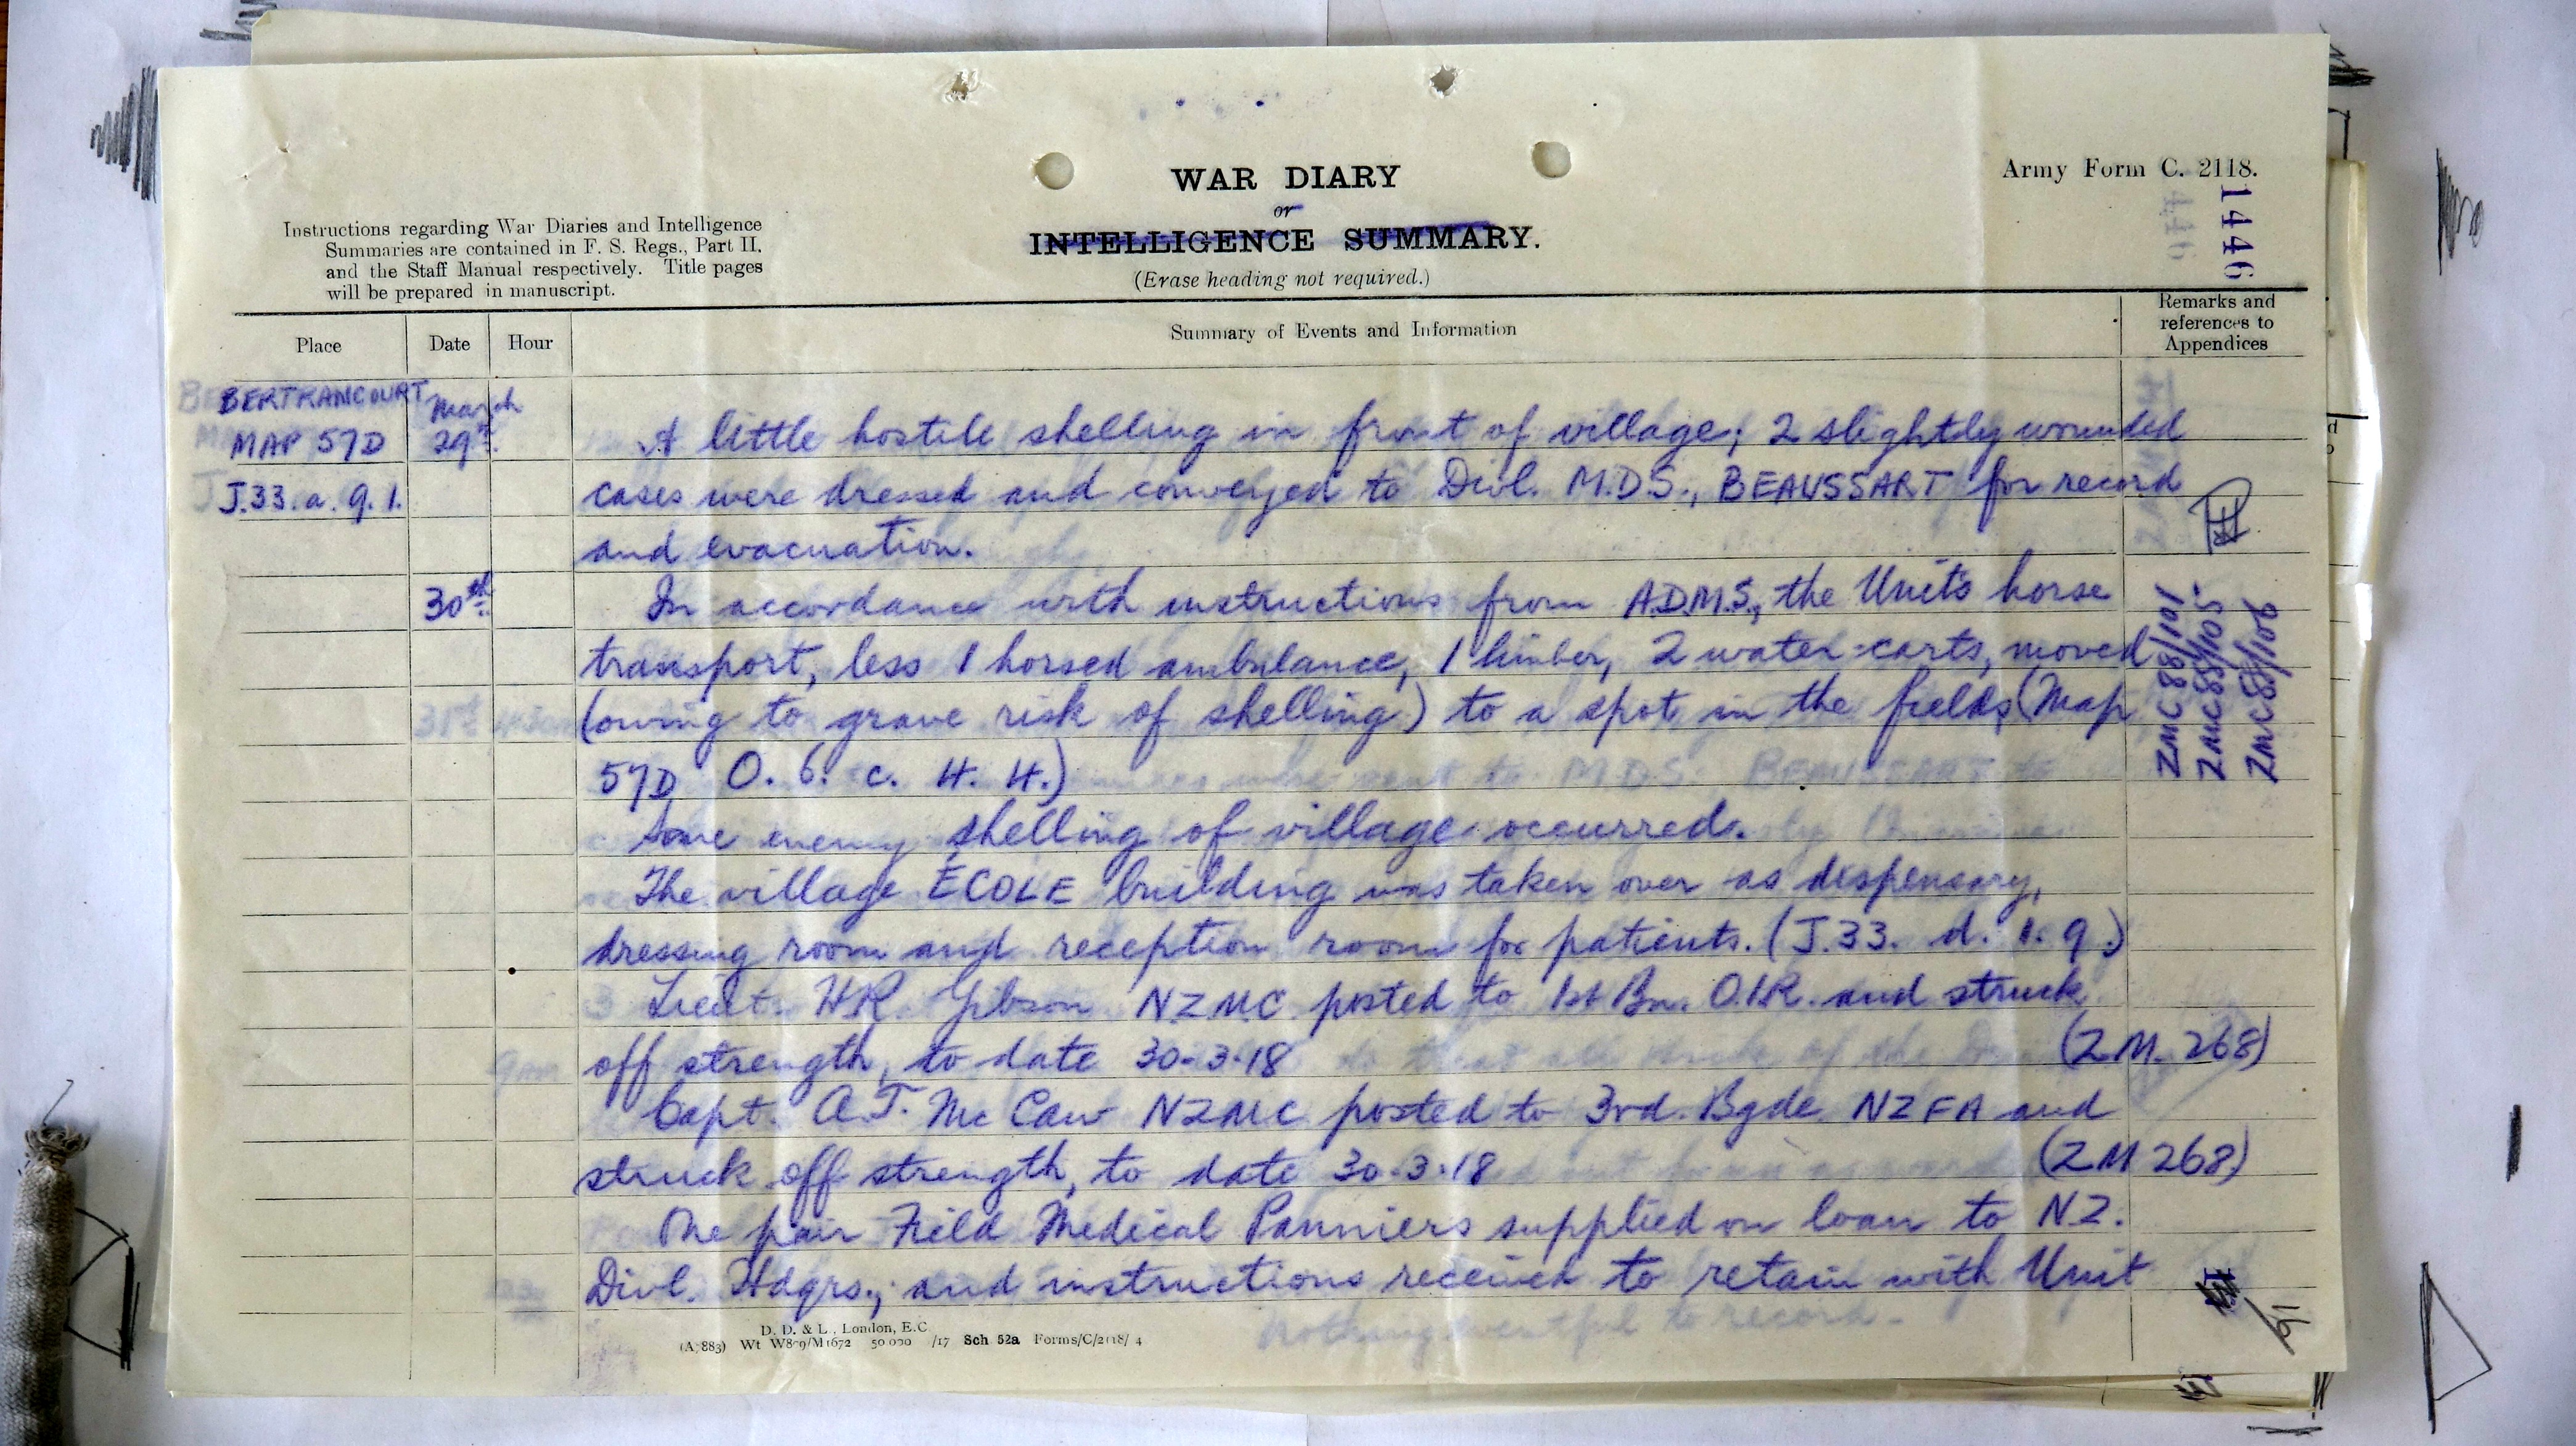 WAR DIARY
or
INTELLIGENCE SUMMARY.
(Erase heading not required.)
Army Form C. 2118.
1446
Instructions regarding War Diaries and Intelligence
Summaries are contained in F. S. Regs., Part II.
and the Staff Manual respectively. Title pages
will be prepared in manuscript.
Place Date Hour Summary of Events and Information Remarks and
references to
Appendices
BERTRANCOURT March
MAP 57D 29th A little hostile shelling in front of village; 2 slightly wounded
J.33.a.9.1. cases were dressed and conveyed to Divl. M.D.S., BEAUSSART for record
and evacuation.
30th In accordance with instructions from A.D.M.S., the Unit's horse
transport, less 1 horsed ambulance, 1 limber, 2 water-carts, moved
(owing to grave risk of shelling) to a spot in the fields (Map
57D O. 6. c. 4. 4.)
ZMC 88/101
ZMC 88/105
ZMC 88/106
Some enemy shelling of village occurred.
The village ÉCOLE building was taken over as dispensary,
dressing room and reception room for patients. (J.33. d. 1. 9.)
Lieut. H.R. Gibson NZMC posted to 1st Bn. O.I.R. and struck
off strength, to date 30-3-18 (ZM. 268)
Capt. A.T. McCaw NZMC posted to 3rd. Bgde. NZFA and
struck off strength, to date 30-3-18 (ZM 268)
One pair Field Medical Panniers supplied on loan to NZ.
Divl. Hdqrs.; and instructions received to retain with Unit
D. D. & L., London, E.C.
(A7883) Wt W809/M1672 50,000 /17 Sch 52a Forms/C/2118/14